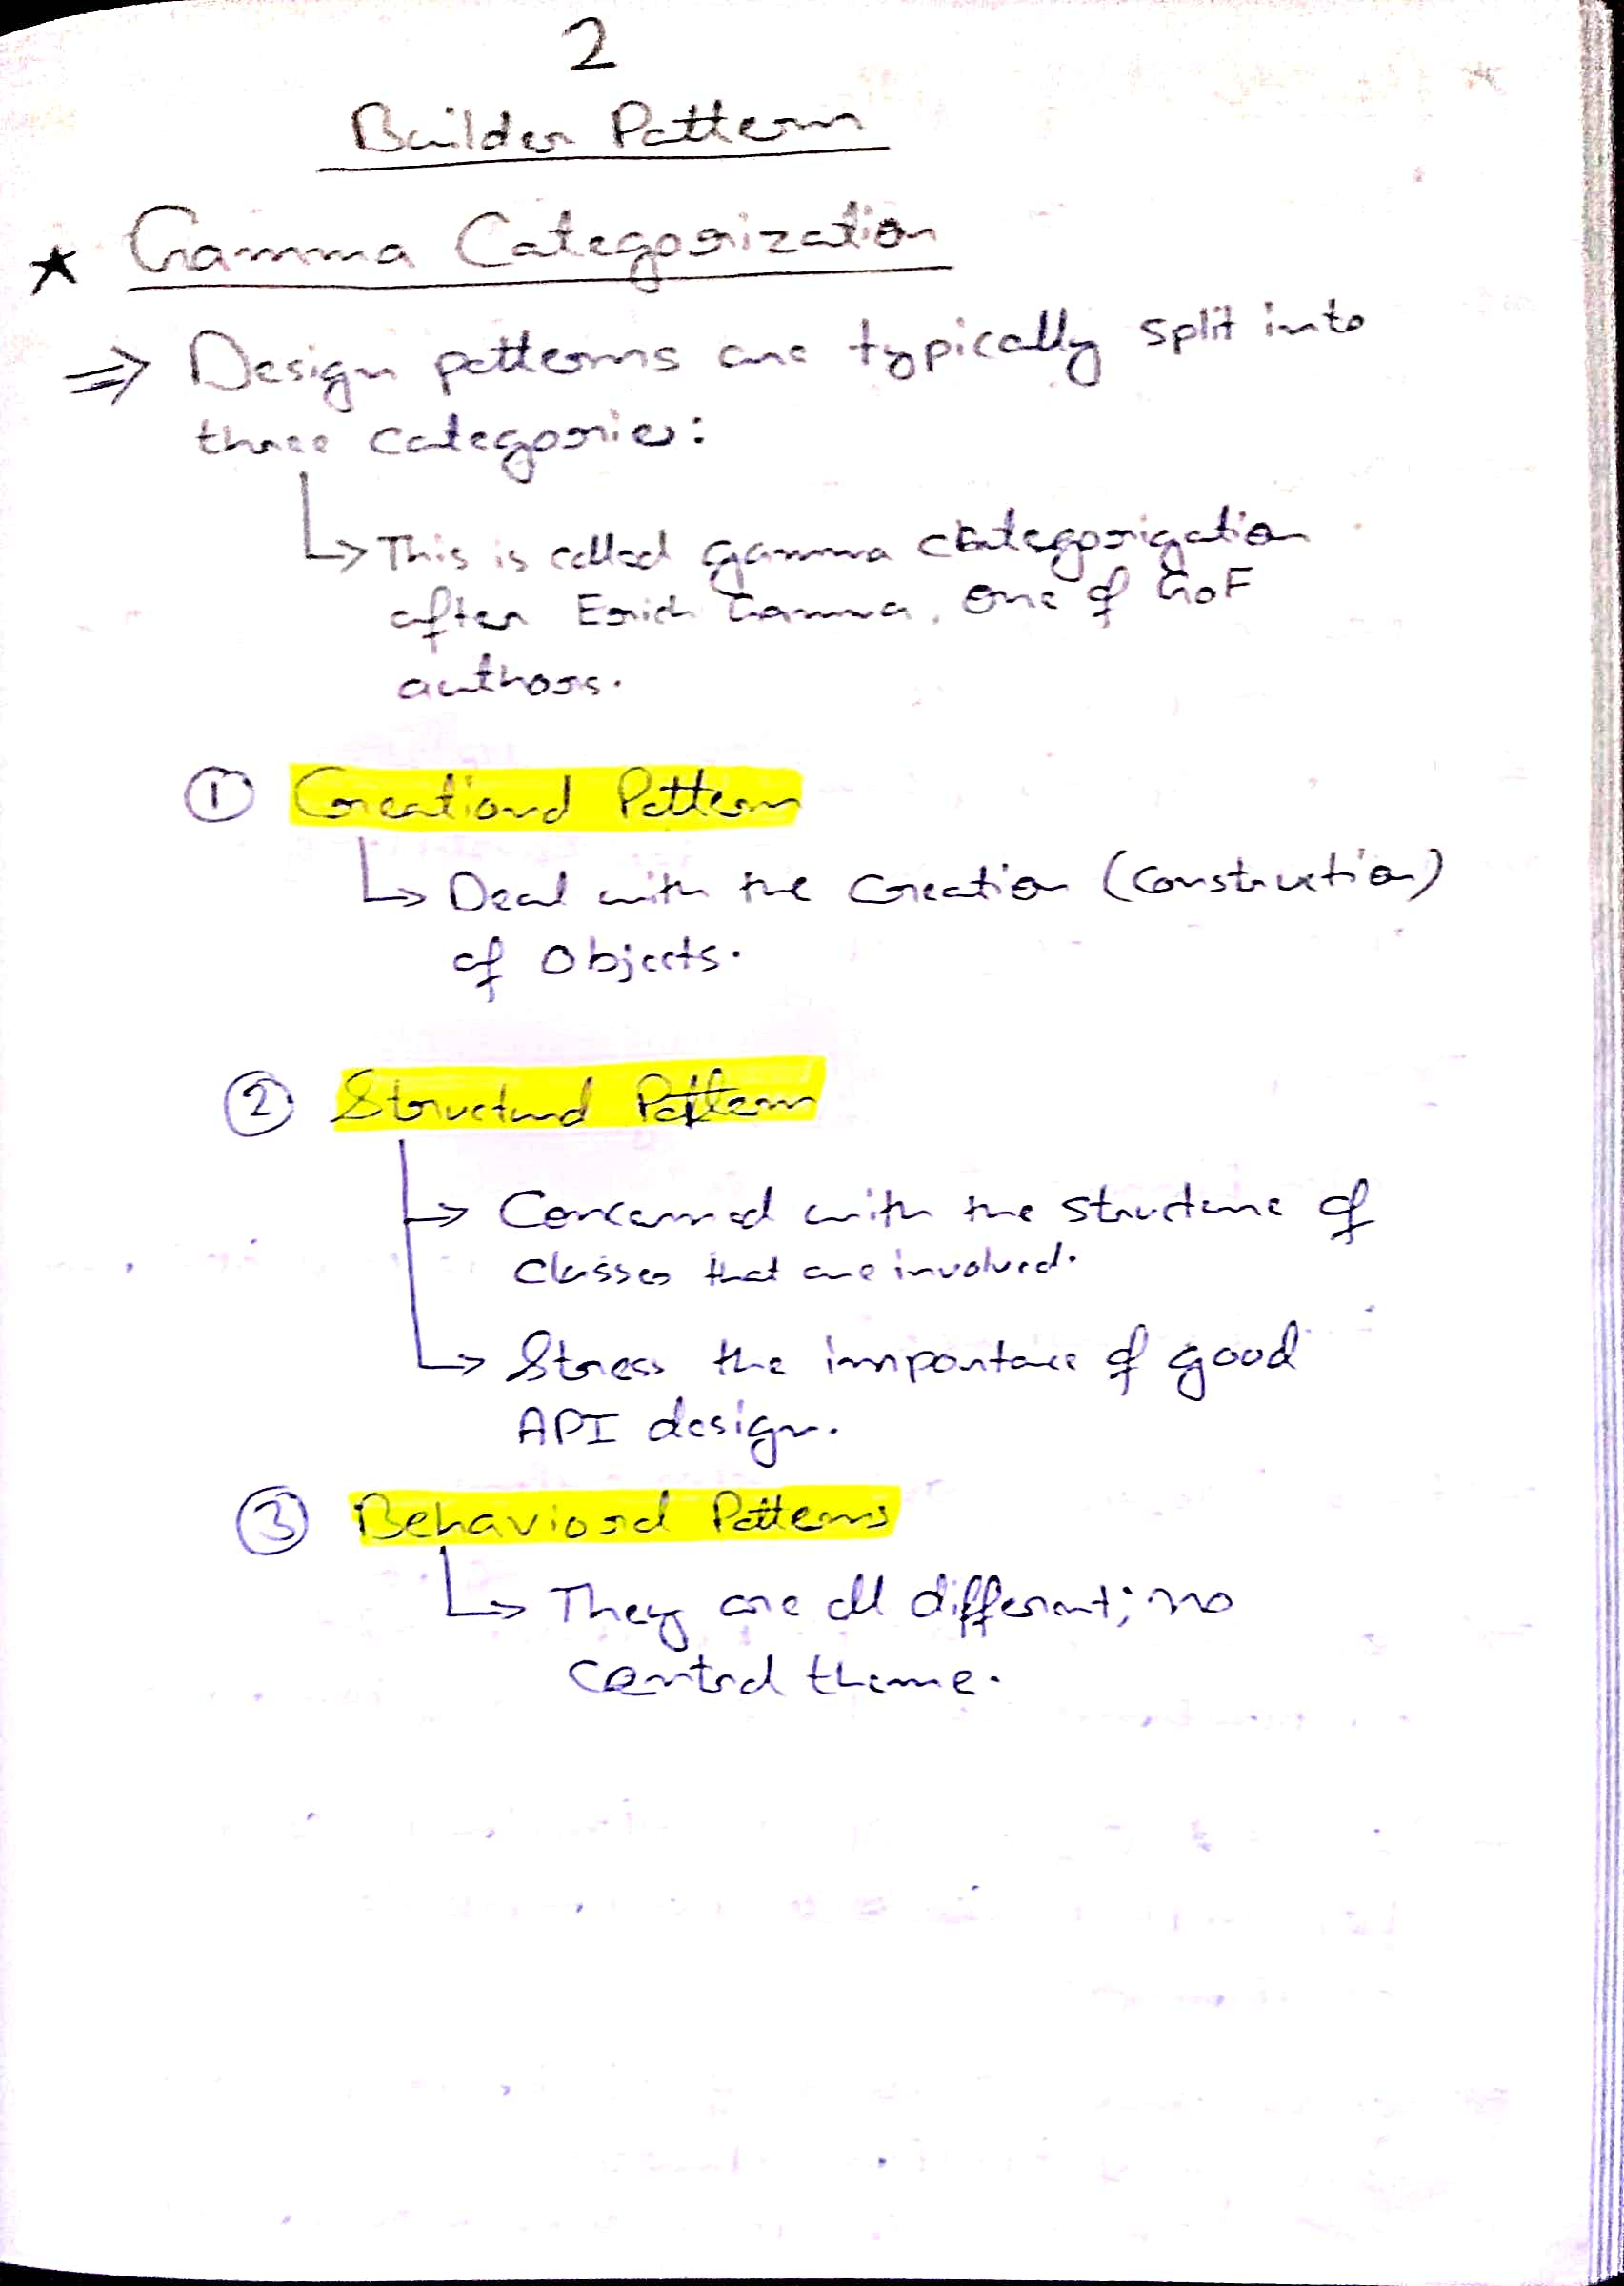 2
Builder Pattern
★ Gamma Categorization
⇒ Design patterns are typically split into
three categories:
↳ This is called gamma categorization
after Erich Gamma, one of GoF
authors.
① Creational Pattern
↳ Deal with the Creation (Construction)
of Objects.
② Structural Pattern
→ Concerned with the structure of
classes that are involved.
↳ Stress the importance of good
API design.
③ Behavioral Patterns
↳ They are all different; no
Central theme.